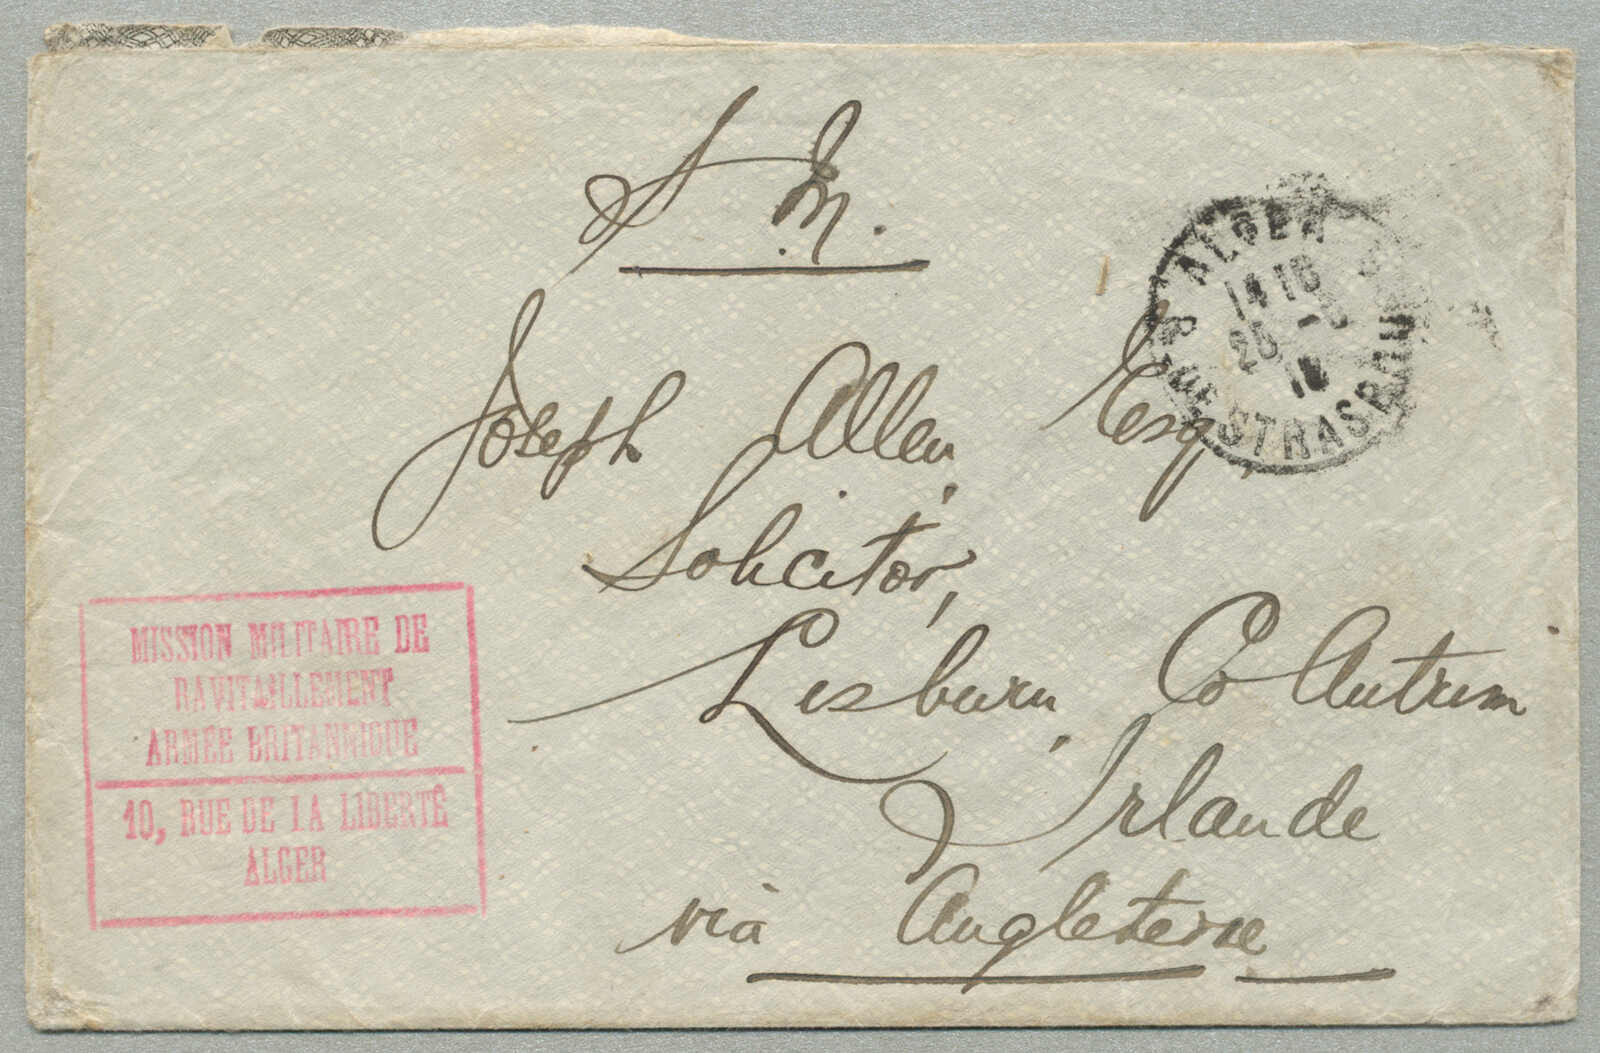 S M.
Joseph Allen, Esq,
Solicitor,
Lisburn, Co Antrim
Irlande
via Angleterre
ALGER
14 18
RUE DE STRASBOURG
MISSION MILITAIRE DE
RAVITAILLEMENT
ARMÉE BRITANNIQUE
10, RUE DE LA LIBERTÉ
ALGER